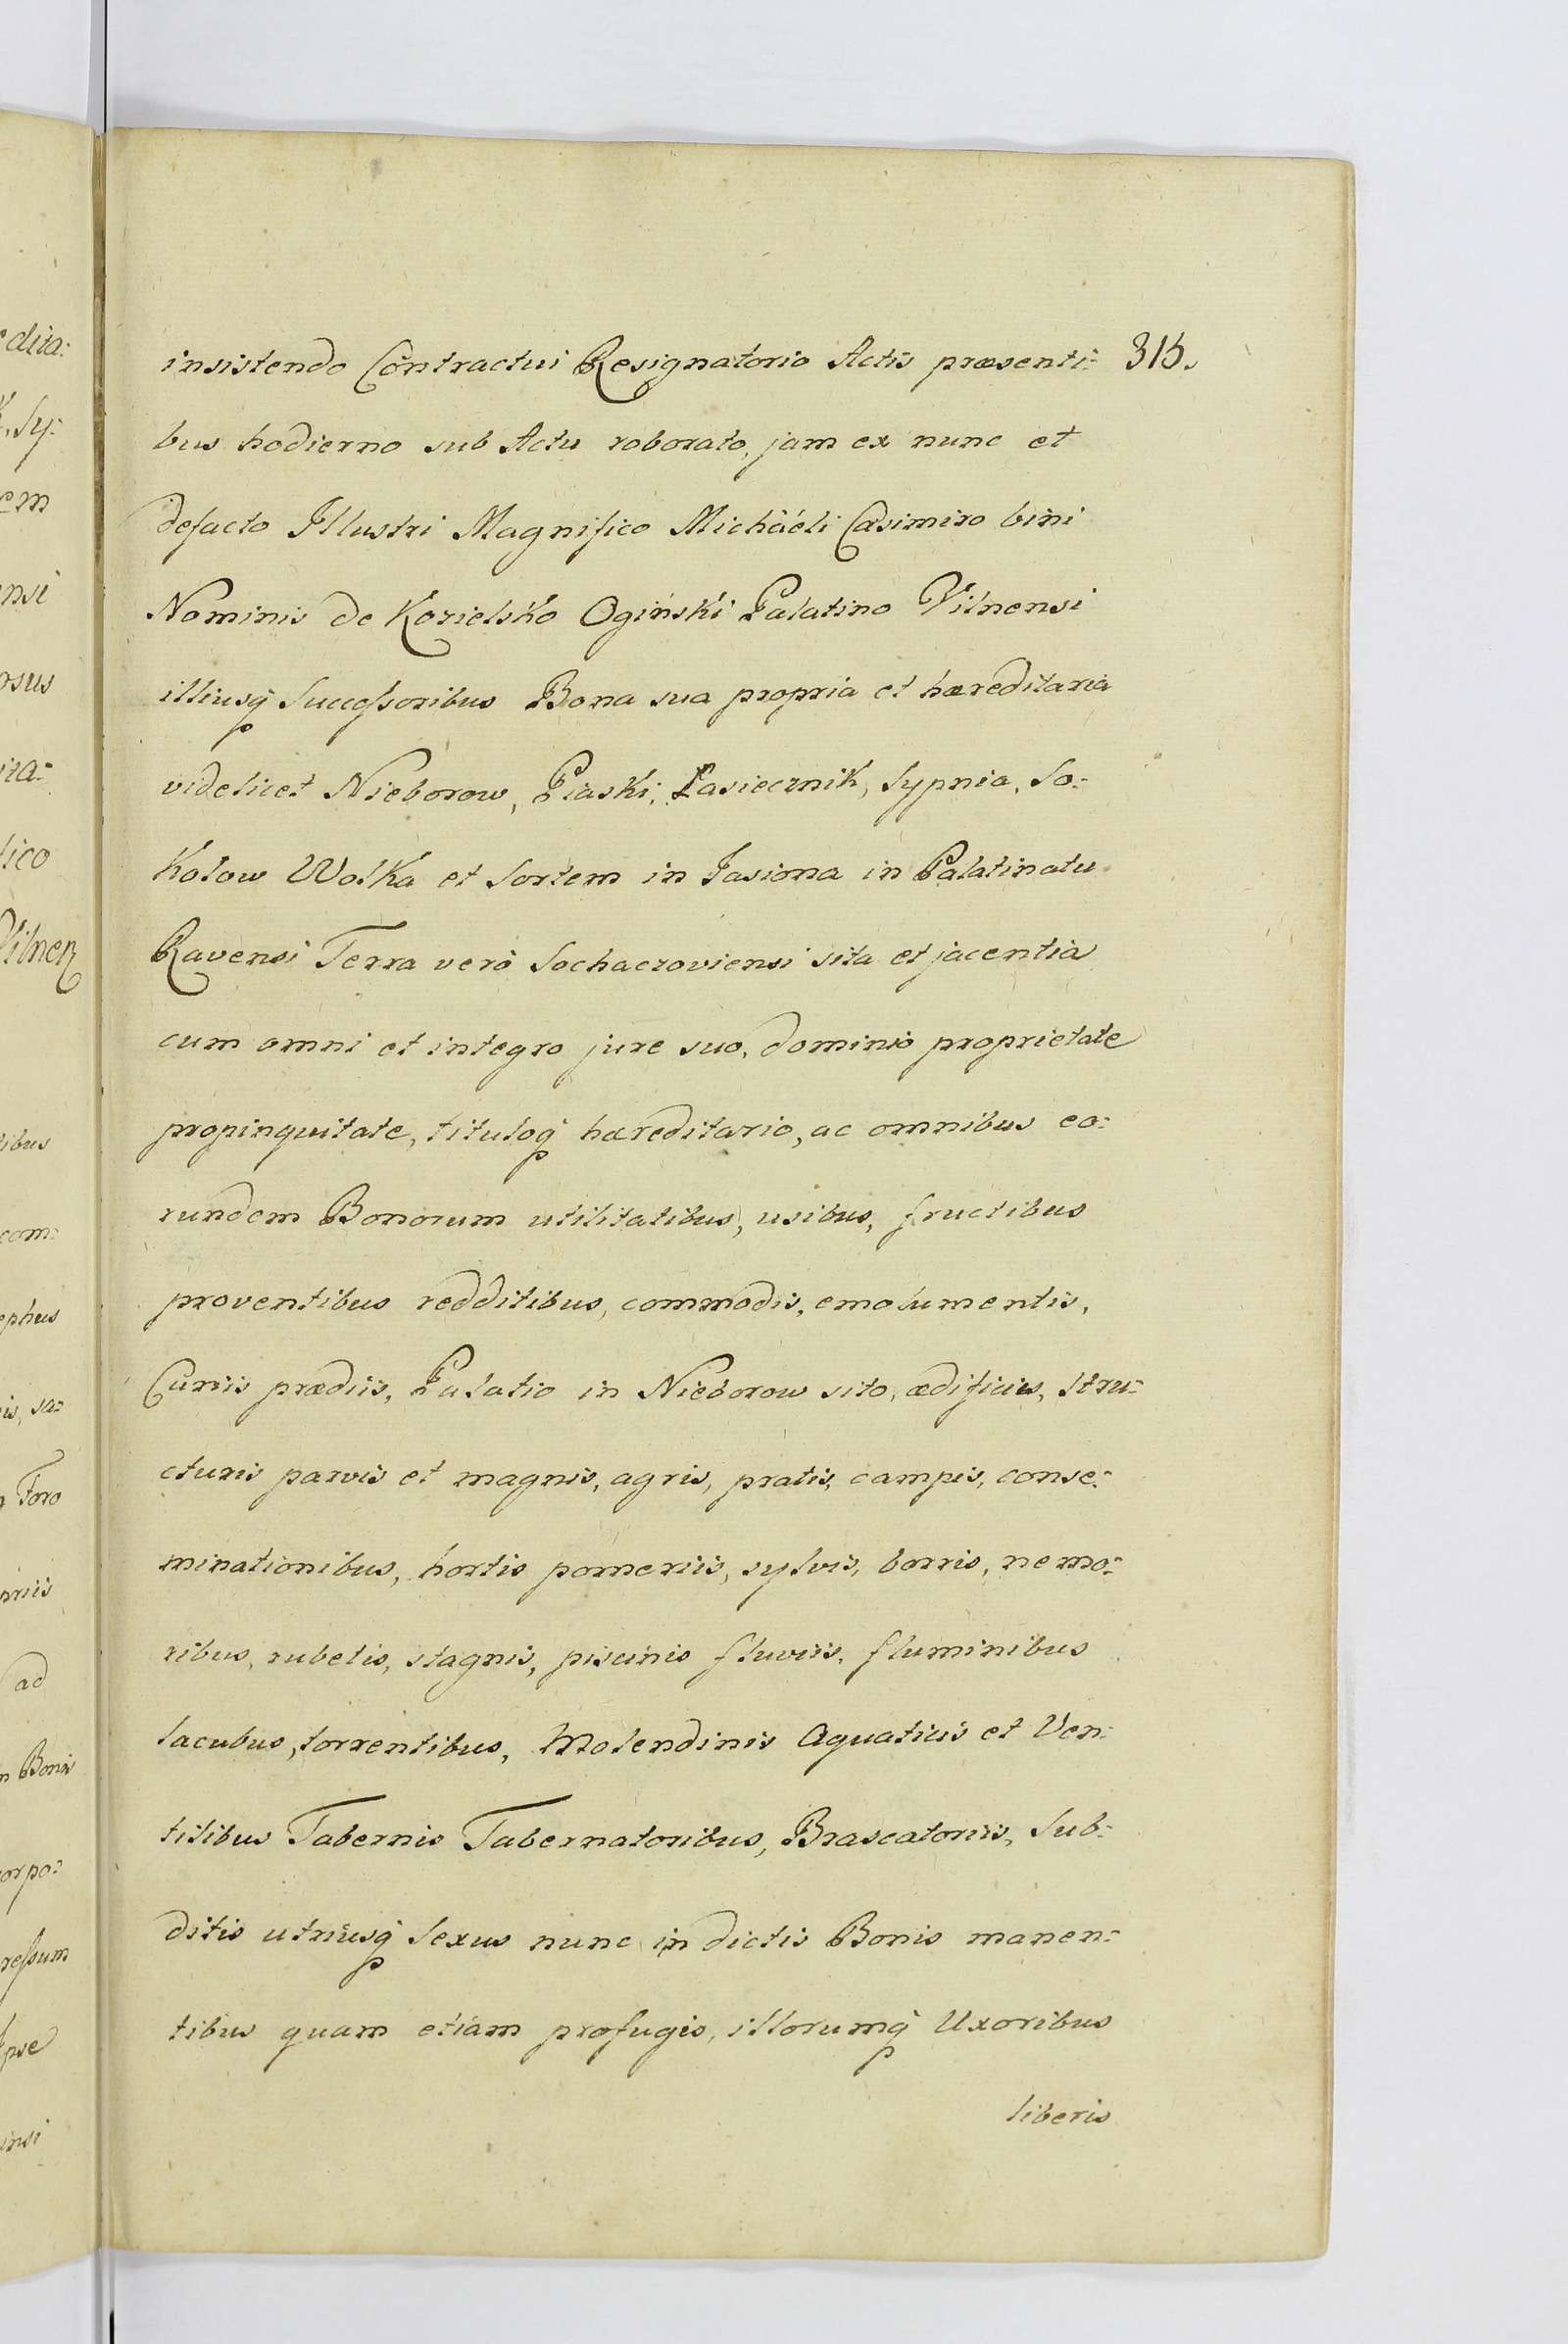 insistendo Contractui Resignatorio Actis præsenti= 315.
bus hodierno sub Actu roborato, jam ex nunc et
defacto Illustri Magnifico Michaéli Casimiro bini
Nominis de Kozielsko Ogiński Palatino Vilnensi
illiusq́ Succeſsoribus Bona sua propria et hæreditaria
videlicet Nieborow, Piaski, Pasiecznik, Sypnia, So=
kolow Wolka et Sortem in Jasiona in Palatinatu
Ravensi Terra verò Sochaczoviensi sita et jacentia
cum omni et integro jure suo, dominio proprietate
propinquitate, tituloq́ hæreditario, ac omnibus eo=
rundem Bonorum utilitatibus, usibus, fructibus
proventibus redditibus, commodis, emolumentis,
Curiis prædiis, Palatio in Nieborow sito, ædificiis, Stru=
cturis parvis et magnis, agris, pratis, campis, conse=
minationibus, hortis pomeriis, sylvis, borris, nemo=
ribus, rubetis, stagnis, piscinis fluviis, fluminibus
lacubus, torrentibus, Molendinis Aquaticis et Ven=
tilibus Tabernis Tabernatoribus, Brascatoriis, Sub=
ditis utriusq́ Sexus nunc in dictis Bonis manen=
tibus quam etiam profugis, illorumq́ Uxoribus
liberis
dita=
Sy=
em
nsi
osus
ra=
ico
Vilnen
ibus
com=
ephus
is, sa=
Foro
ad
Bonis
orpo=
reſsum
Ipse
ensi